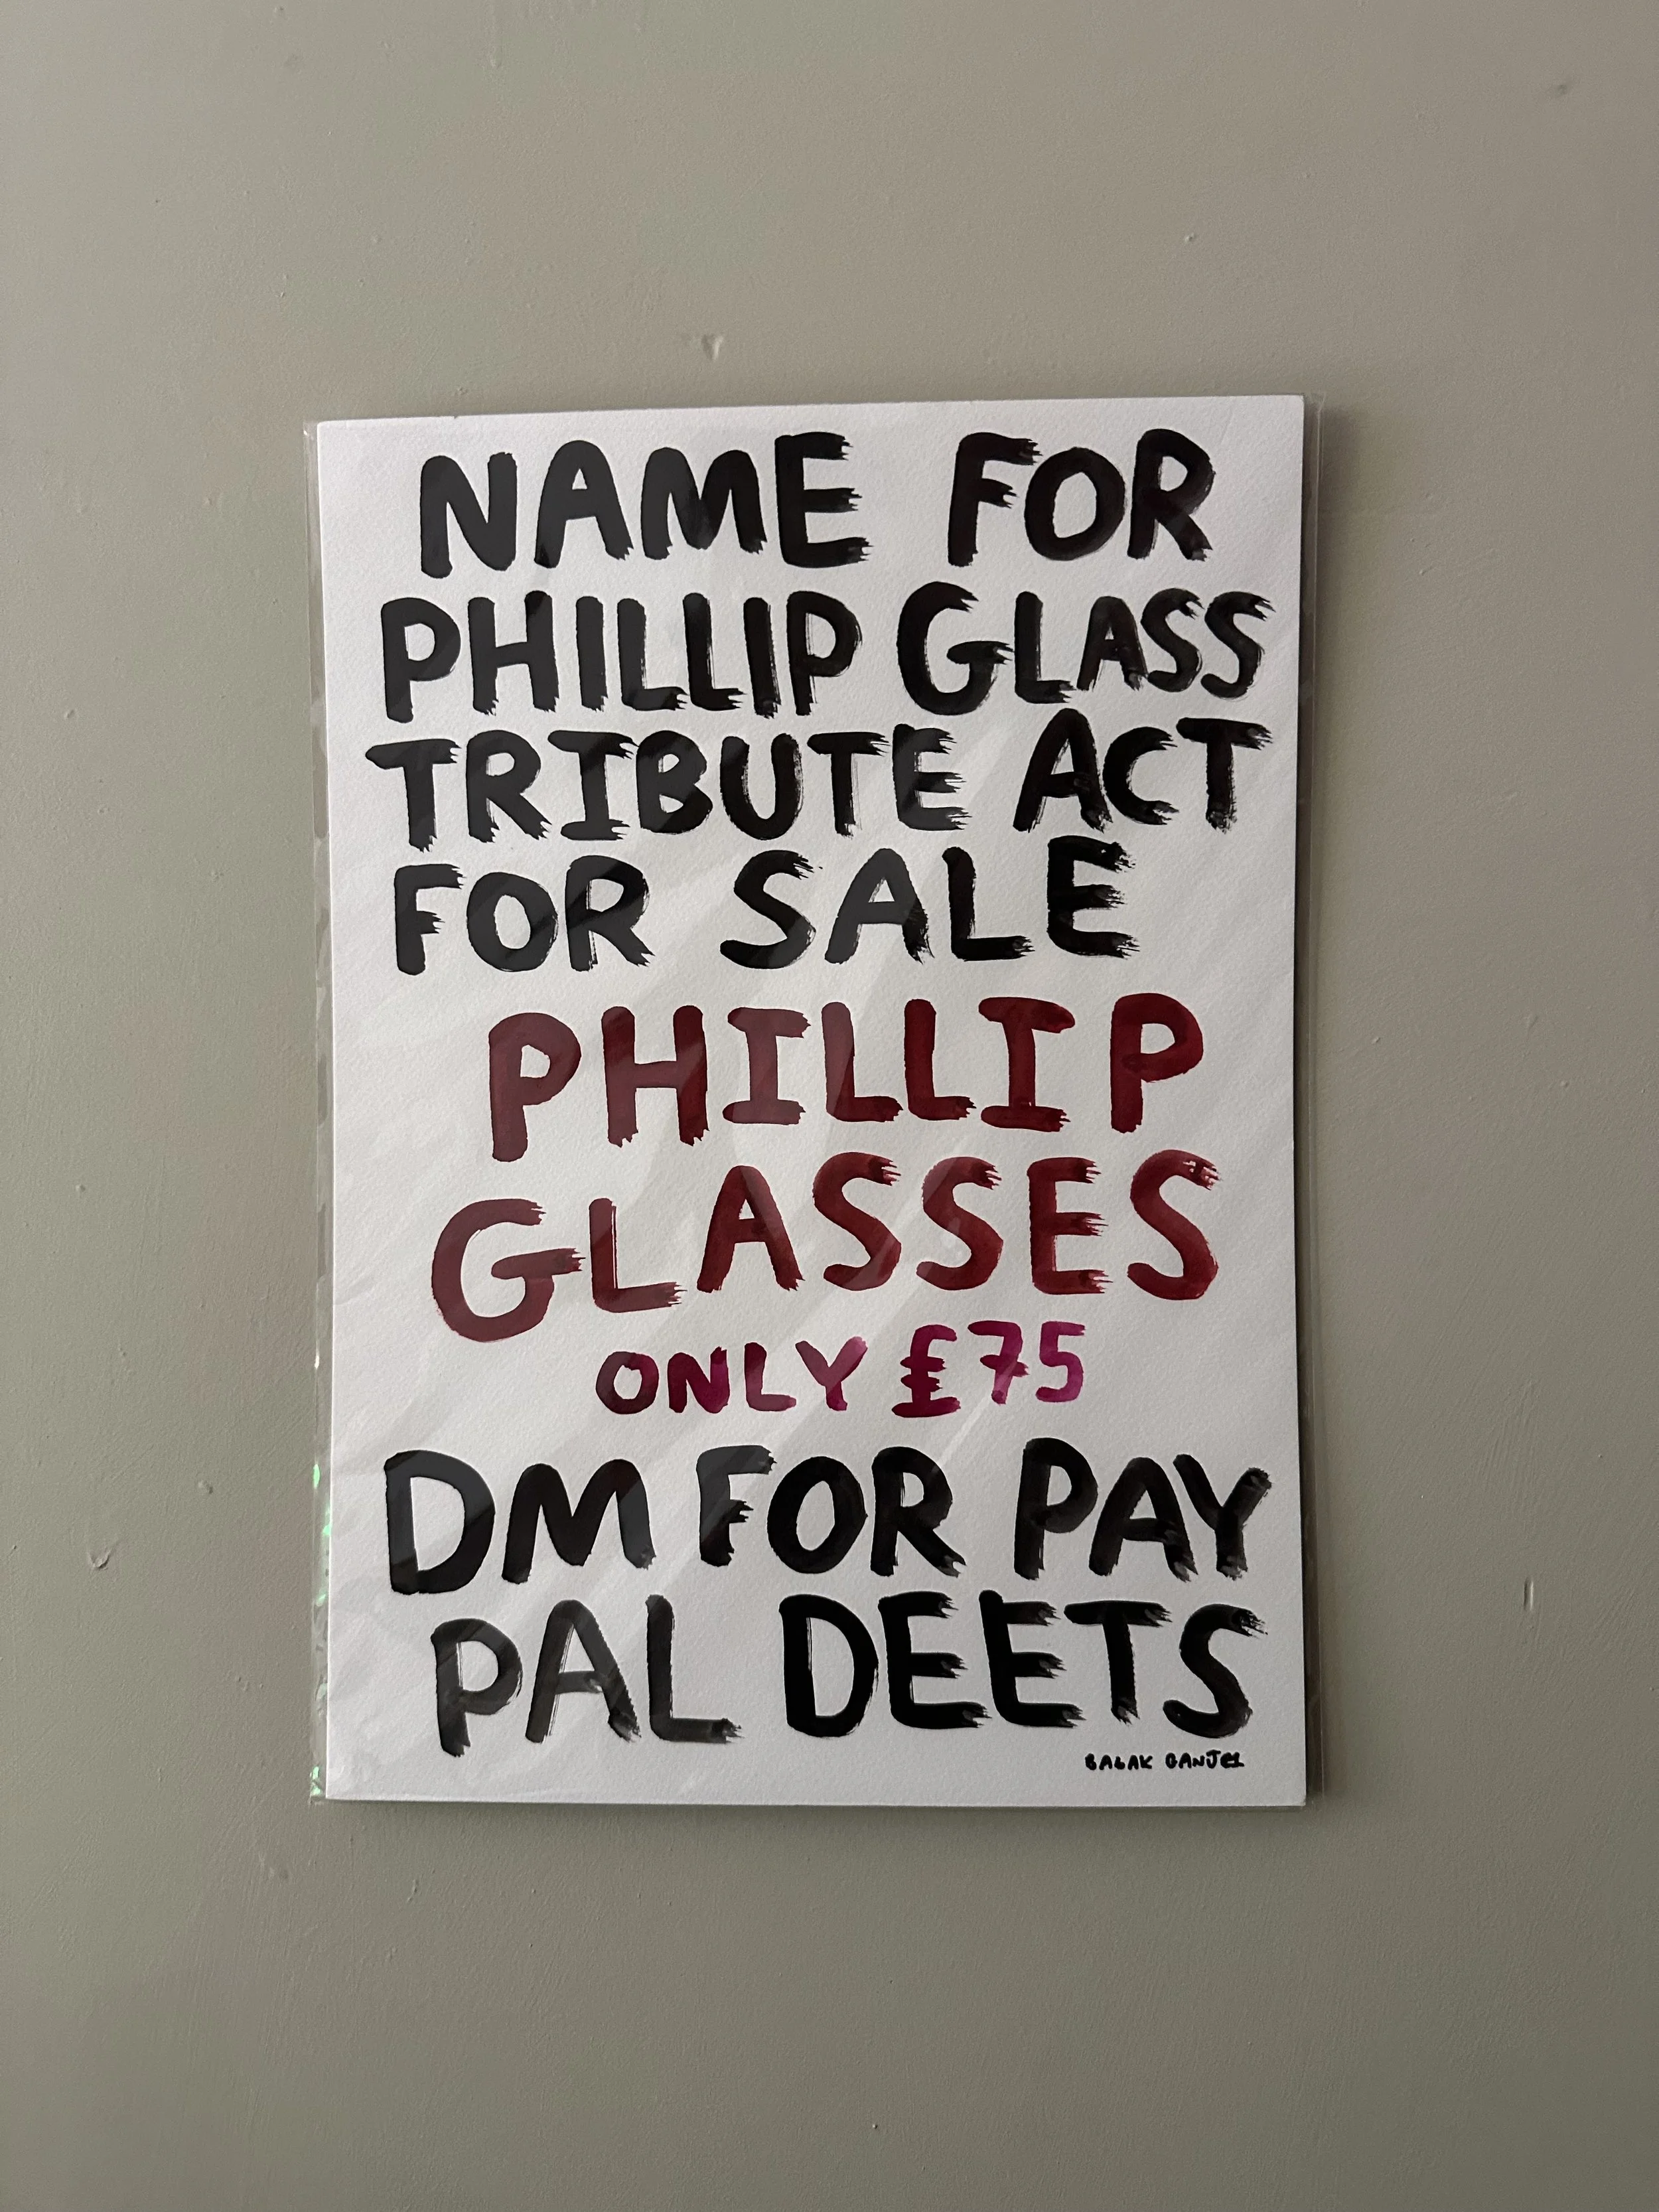 NAME FOR
PHILLIP GLASS
TRIBUTE ACT
FOR SALE
PHILLIP
GLASSES
ONLY £75
DM FOR PAY
PAL DEETS